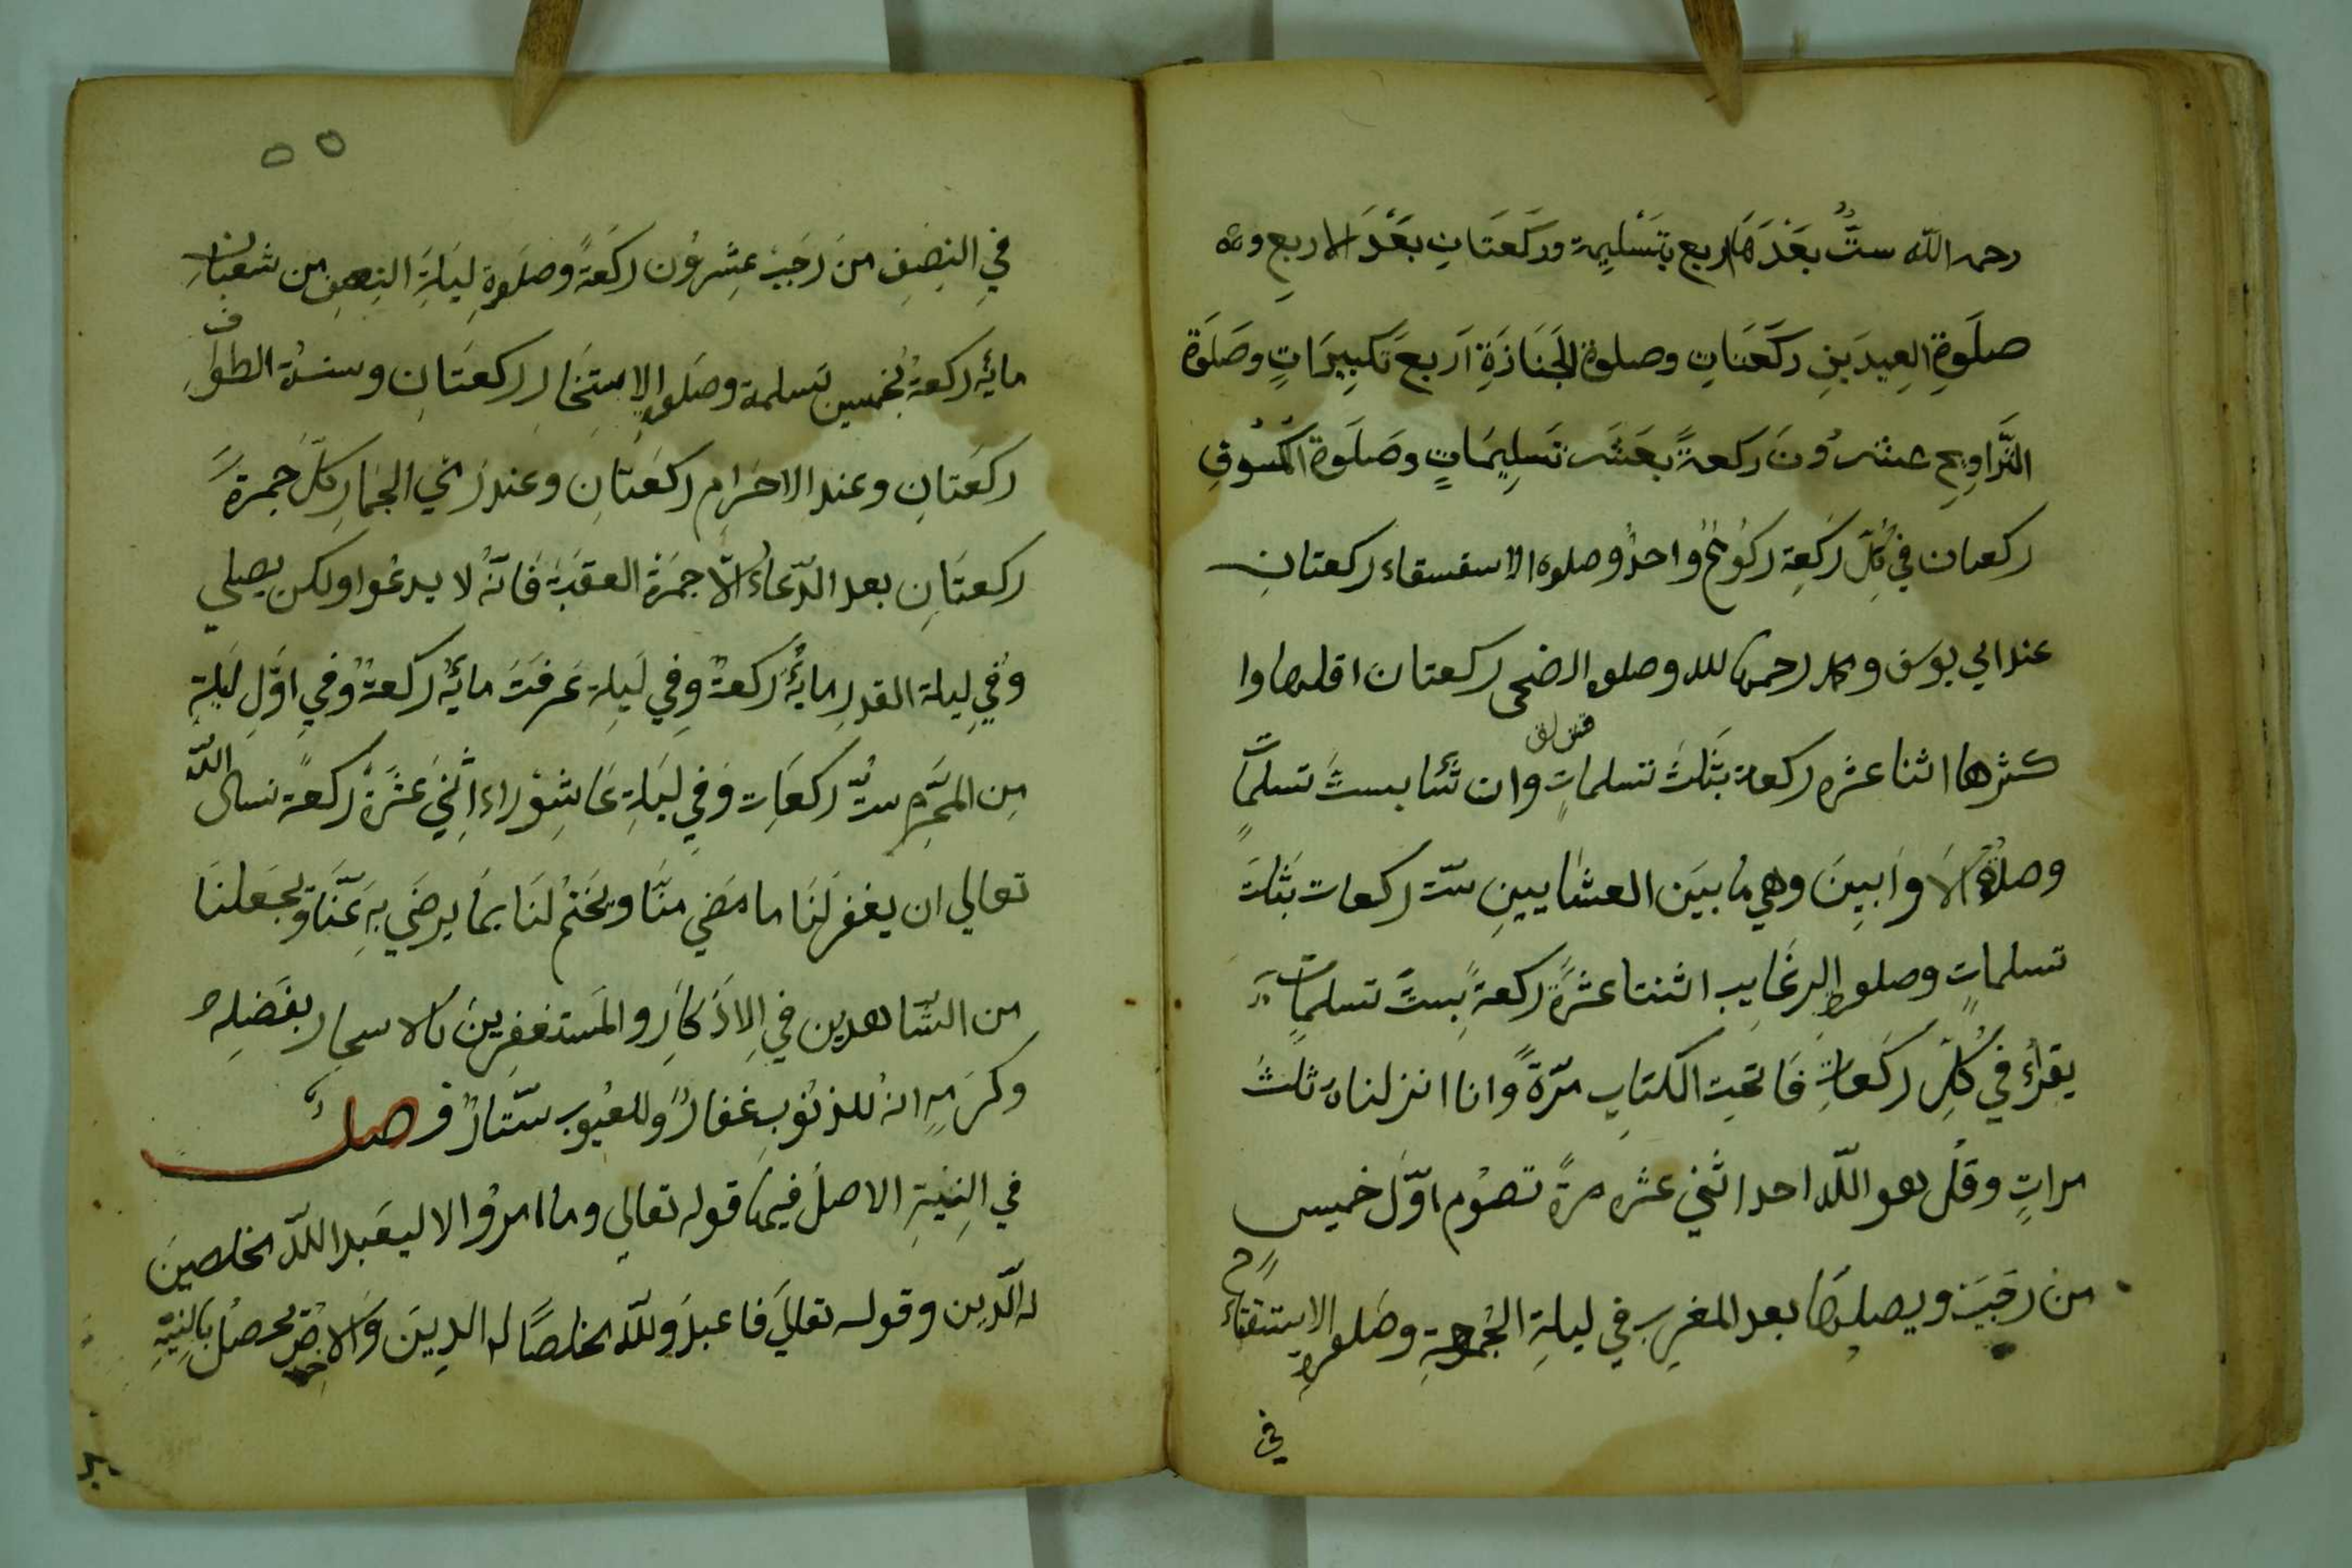 رحمه الله ستٌّ بَعْدَهَا اربع بتَسْلِيمة وركَعَتَانِ بَعْدَ الاربعِ و
صلَوةِ العِيدَينِ ركَعَتَانِ وصلوة الجَنَازَةِ اَربعَ تَكبِيرَاتٍ وصَلَوَة
التَّرَاوِيحِ عشرُونَ ركعةً بعَشَر تَسلِيمَاتٍ وصَلَوة الكُسُوفِ
ركعتان في كُلِّ ركَعِة ركُوعٌ واحدٌ وصلوة الاستسقاء ركعتانِ
عند ابي يوسف ومحمد رحمهما الله وصلوة الضحى ركعتان اقلها وا
كثرها اثنا عشره ركعة بثَلثَ تسلماتٍ وان شَئا بستَ تسلماتٍ
وصلوةُ الاَوابِينَ وهي ما بيَن العشايينِ ستّ ركعات بثَلثَ
تسلماتٍ وصلوة الرغَايِب اثنتا عشَرَة ركعةً بِستَ تسلماتٍ
يقرأُ في كُلِّ ركَعاتِ فَاتحِت الكتابِ مرّةً وانا انزلناه ثلثَ
مراتٍ وقُل هو اللّه احد اثني عشره مرةً تصوُم اوّلَ خميس
من رجَبَ ويصليها بعد المغربِ في ليلةِ الجُمعةِ وصَلوة الاستفتاح
في
٥٥
في النِصَفِ منَ رَجَب عِشرِوُن ركَعةً وصلَوةِ ليَلَةَ النِصفِ من شعبَان
مايَه ركعةً بُخمسين تسلمة وصَلوة الاِستِخَار ركعتَانِ وسنةُ الطوَافِ
ركَعتانِ وعند الاحَرامِ ركَعتَانِ وعند رَمي الجِمَارِ كلَّ جمرةً
ركعتَانِ بعد الدّعاءُ الاّ جمَرَة العقَبَة فَانّهُ لا يدعُوا ولكن يصلي
وَفي لِيلة القدرِ مايَةُ ركعةً وِفي لَيلِة عَرفَت مايَة ركعةً وفي اوَّلِ لَيلةِ
مِن المحَرّم ستُّ ركعَات وَفي ليَلةِ عَاشِوُراء اِثنَي عَشَرَةَ ركعةً نسال اللّه
تعالي ان يغفر لنَا ما مضَي منّا ويختم لنَا بمَا يرضَي بهِ عَنَّا ويجَعلنَا
من الشّاهدين في الاِذَكار والمَستغفِرين بالاسحار بفَضلِه
وكرَمهِ انهُ للذنُوبِ غفارٌ وللعُيوب ستّارٌ فصل
في النِيّةِ الاصلُ فيها قوله تعالي وما امرُوا الا ليعَبدوا اللّه مخلصينَ
له الدّين وقوله تعاليَ فاعبدُوا للّه مخلصًا له الدِينَ وَالاخِلاص يحصُل بالنِيّةِ